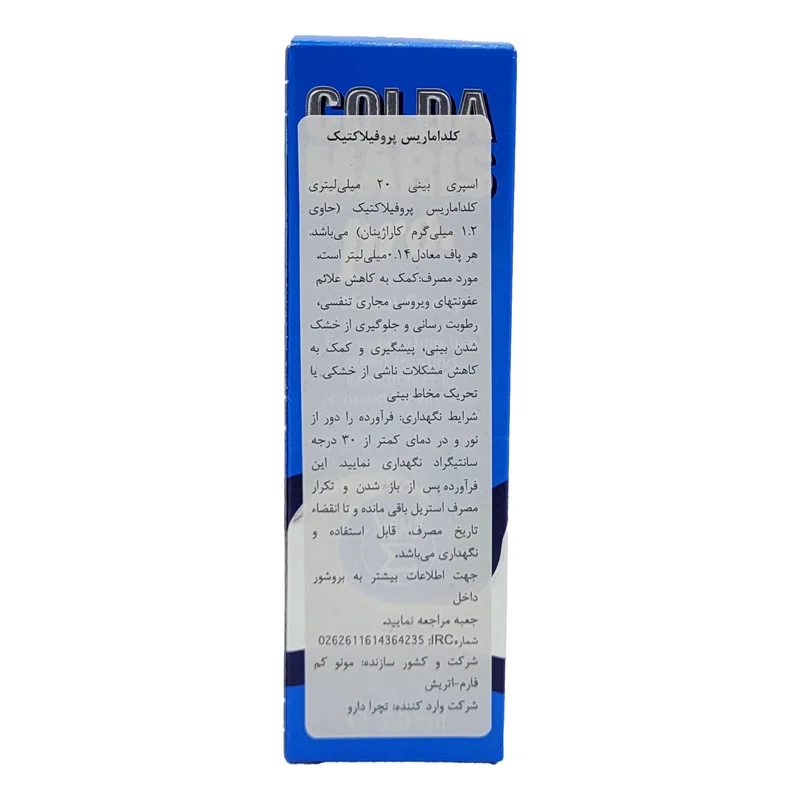 COLDA
MARIS
کلداماریس پروفیلاکتیک
اسپری بینی ۲۰ میلی‌لیتری
کلداماریس پروفیلاکتیک (حاوی
۱.۲ میلی‌گرم کاراژینان) می‌باشد.
هر پاف معادل ۰.۱۴میلی‌لیتر است.
مورد مصرف:کمک به کاهش علائم
عفونتهای ویروسی مجاری تنفسی،
رطوبت رسانی و جلوگیری از خشک
شدن بینی، پیشگیری و کمک به
کاهش مشکلات ناشی از خشکی یا
تحریک مخاط بینی
شرایط نگهداری: فرآورده را دور از
نور و در دمای کمتر از ۳۰ درجه
سانتیگراد نگهداری نمایید. این
فرآورده پس از باز شدن و تکرار
مصرف استریل باقی مانده و تا انقضاء
تاریخ مصرف، قابل استفاده و
نگهداری می‌باشد.
جهت اطلاعات بیشتر به بروشور
داخل
جعبه مراجعه نمایید.
شماره IRC: 0262611614364235
شرکت و کشور سازنده: مونو کم
فارم-اتریش
شرکت وارد کننده: تچرا دارو